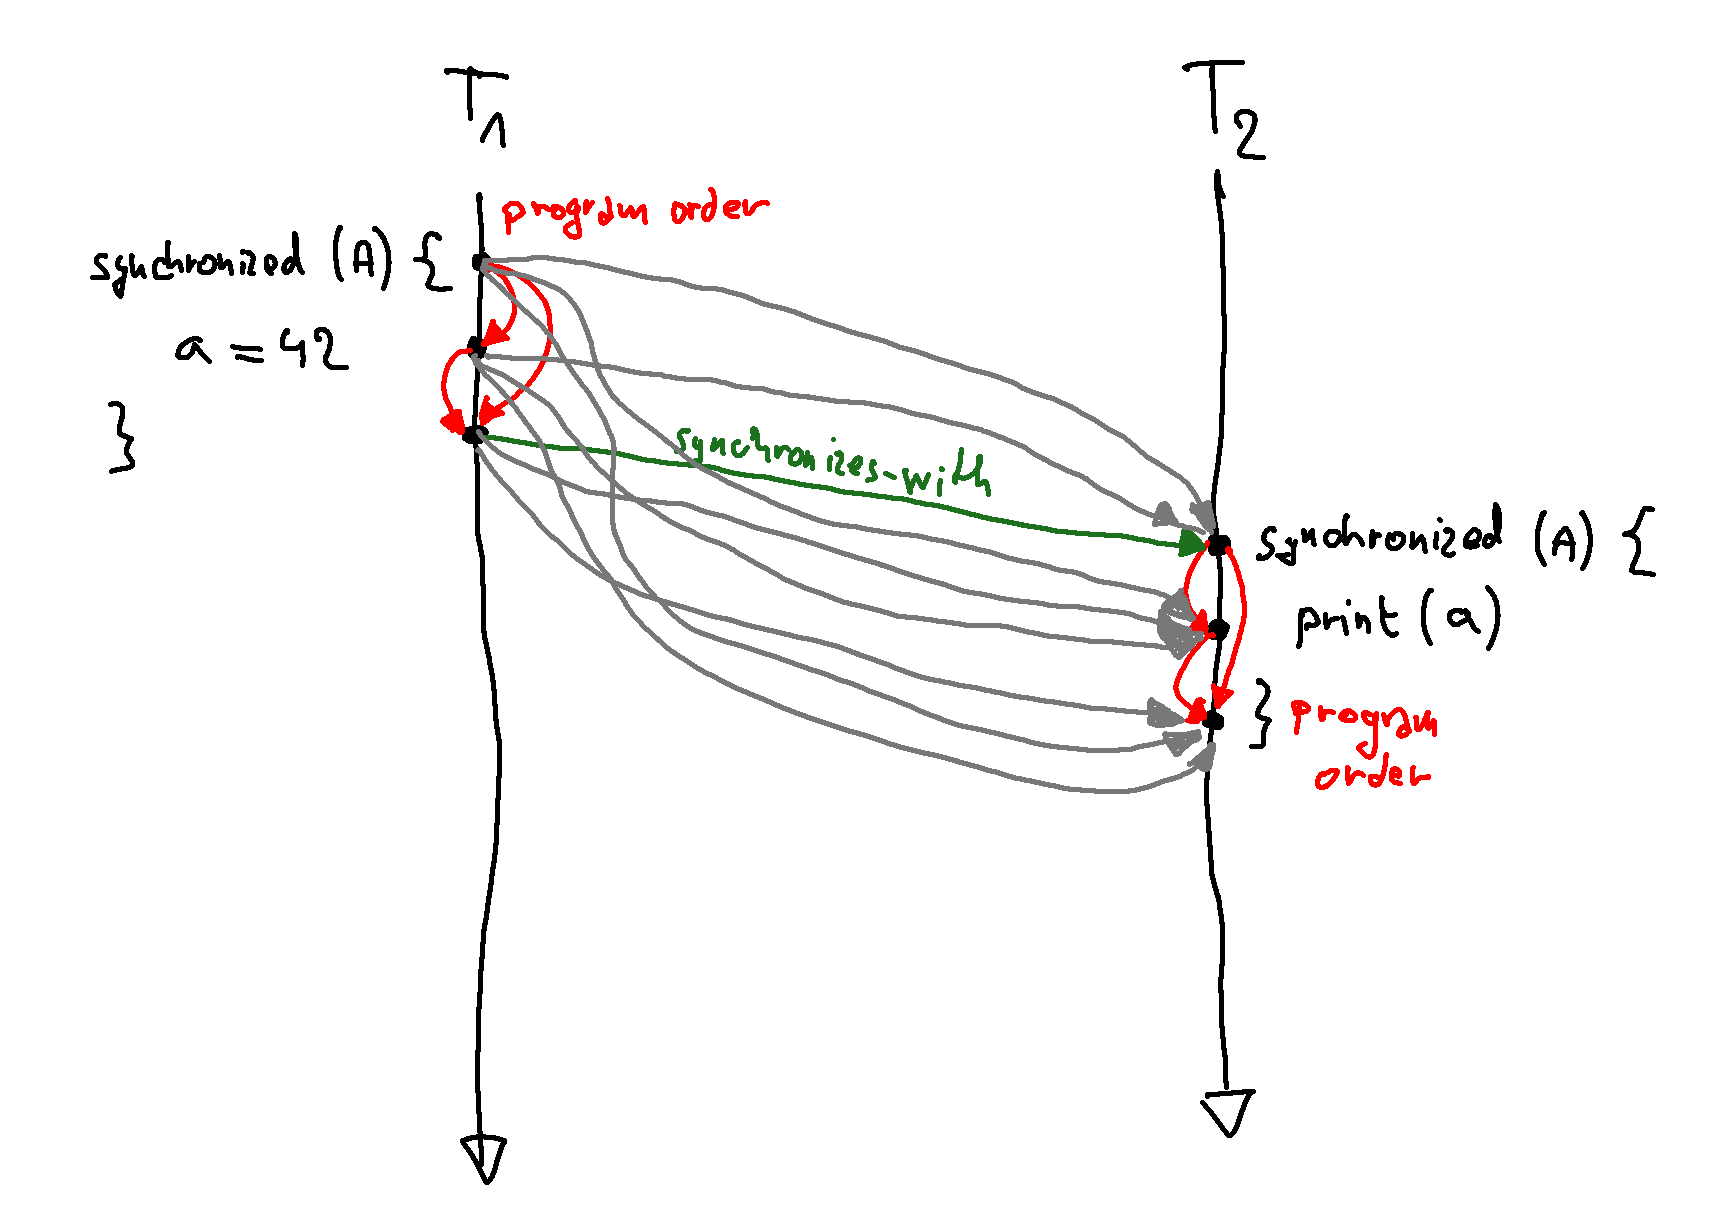 T1
T2
program order
synchronized (A) {
a = 42
}
synchronizes-with
synchronized (A) {
print (a)
}
program
order